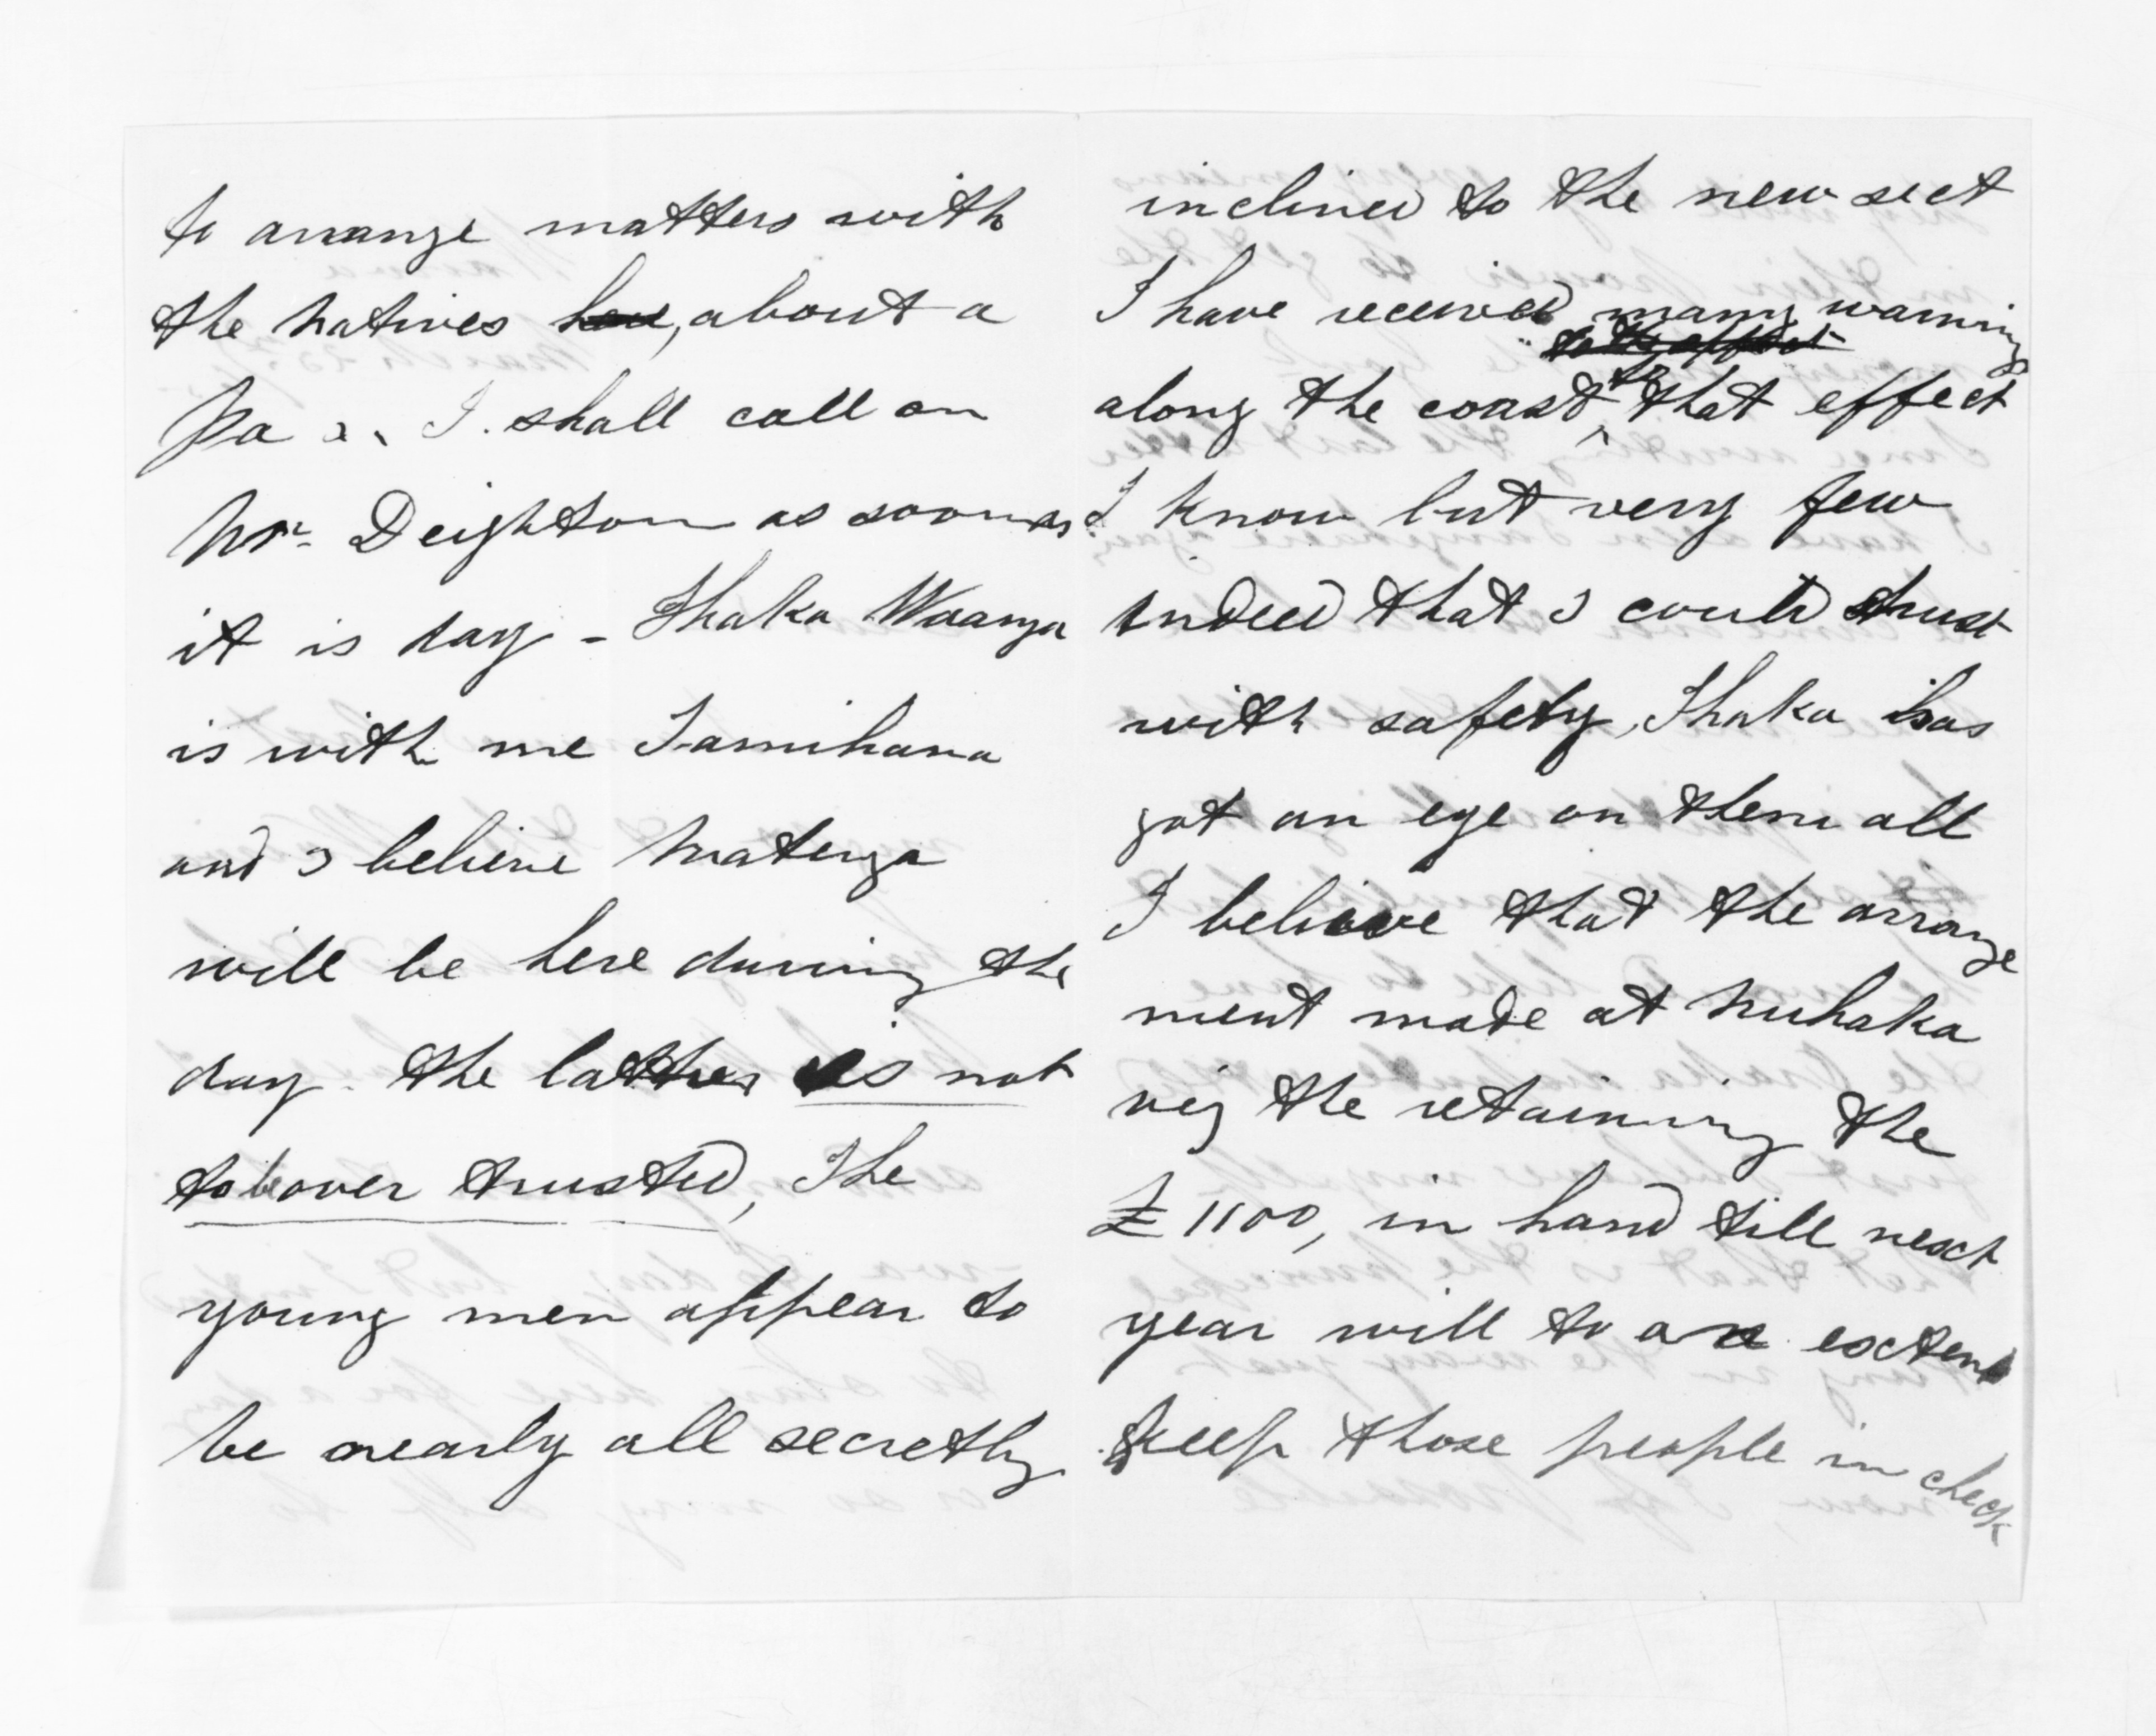 to arrange matters with
the natives here, about a
Pa &c, I. shall call on
Mr. Deighton as soon as
it is day - Ihaka Waanga
is with me Tamihana
and I believe Matenga
will be here during the
day. the latter is not
to be over trusted, The
young men appear to
be nearly all secretly
inclined to the new sect
I have received many warnings
to the effect
along the coast to that effect
I know but very few
indeed that I could trust
with safety, Ihaka has
got an eye on them all
I believe that the arrange
ment made at Nuhaka
viz the retaining the
£1100, in hand till next
year will to an extent
keep those people in check